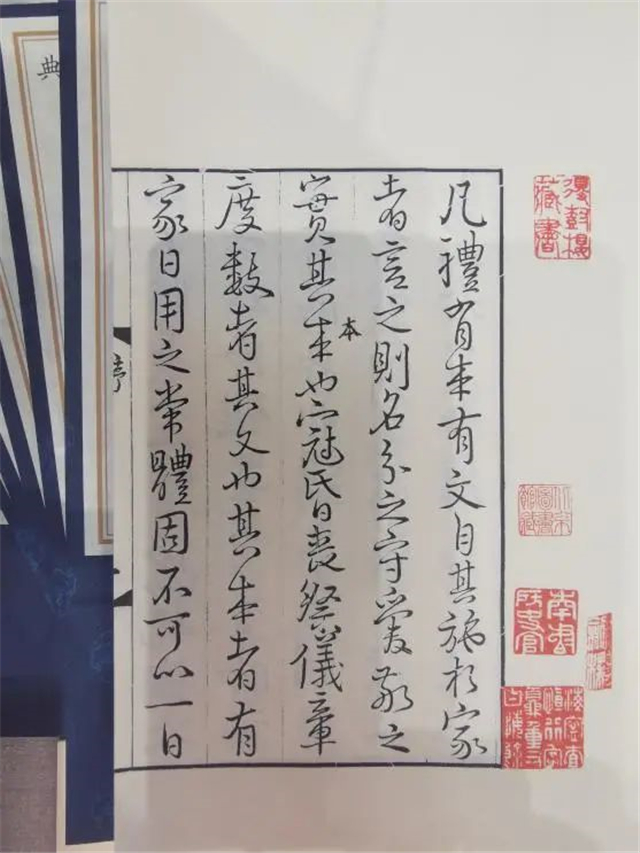 凡禮有本有文自其施於家
者言之則名分之守愛敬之
實其本也冠昏喪祭儀章
本
度數者其文也其本者有
家日用之常體固不可以一日
序
典
藏書